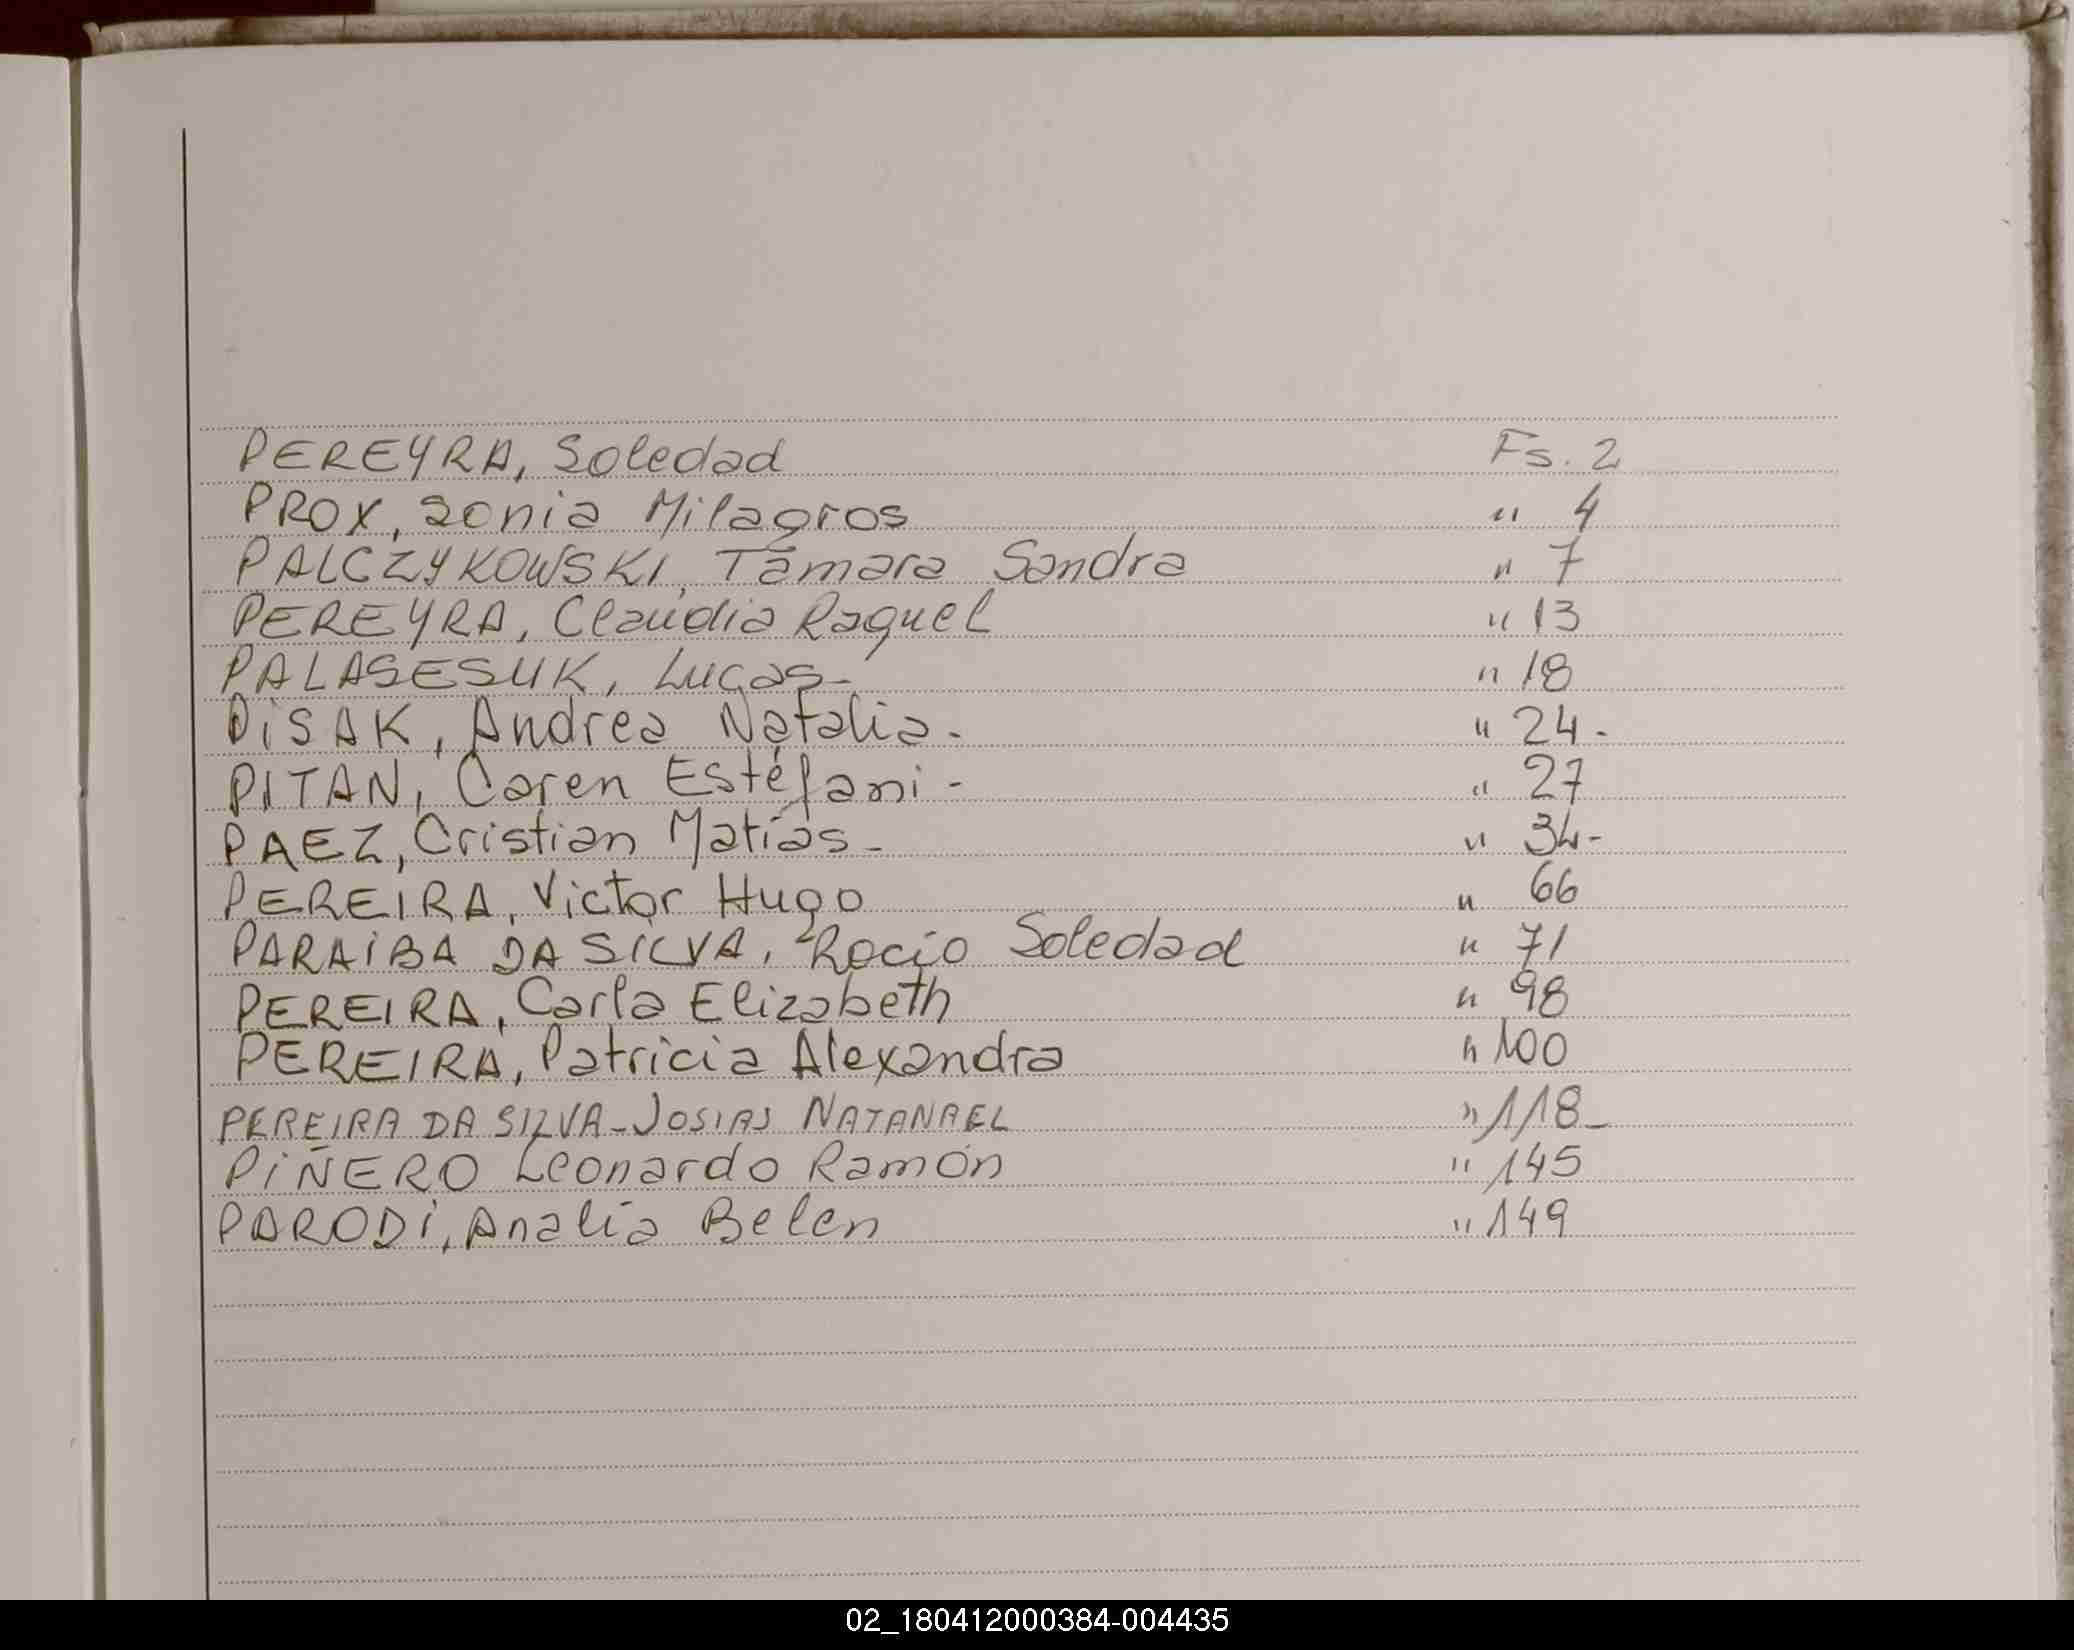 PEREYRA, Soledad Fs. 2
PROX, Sonia Milagros " 4
PALCZYKOWSKI, Támara Sandra " 7
PEREYRA, Claudia Raquel " 13
PALASESUK, Lucas- " 18
PiSAK, Andrea Natalia- " 24-
PITAN, Caren Estéfani- " 27
PAEZ, Cristian Matías- " 34-
PEREIRA, Victor Hugo " 66
PARAiBA DA SiLVA, Rocio Soledad " 71
PEREIRA, Carla Elizabeth " 98
PEREIRA, Patricia Alexandra " 100
PEREIRA DA SILVA-JOSIAS NATANAEL " 118-
PiÑERO Leonardo Ramón " 145
PARODi, Analía Belen " 149
02_180412000384-004435